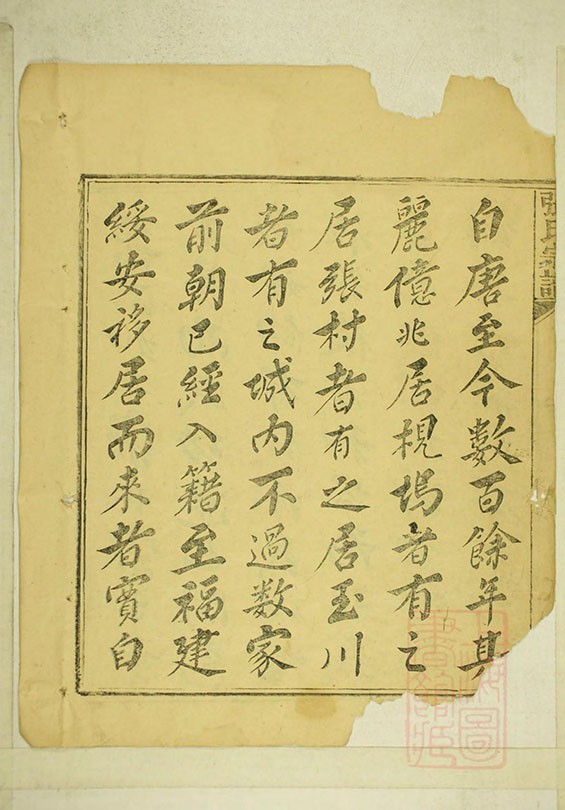 張氏宗譜
自唐至今數百餘年其
麗億兆居梘塢者有之
居張村者有之居玉川
者有之城内不過数家
前朝已經入籍至福建
綏安移居而来者實自